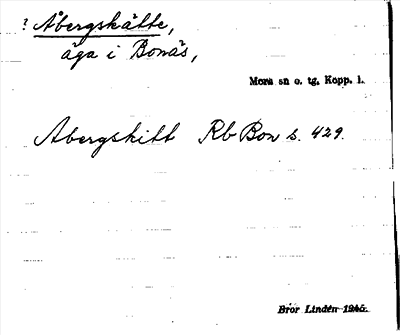 ? Åbergskätte,
äga i Bonäs,
Mora sn o. tg, Kopp. l.
Abergskitt Rb Bon s. 429.
Bror Lindén 1945.